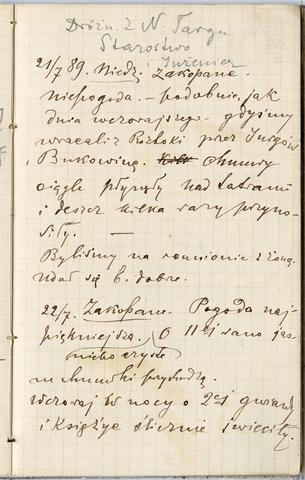 Dróżn. z N. Targu
Starostwo
i Inżenier
21/7 89. Niedz. Zakopane.
niepogoda. – podobnie, jak
dnia wczorajszego. gdyśmy
wracali z Roztoki przez Jurgów
i Bukowinę. Chmury
ciągle płynęły nad Tatrami
i deszcz kilka razy przyno-
siły. —
Byliśmy na reunionie z żoną.
udał się b. dobrze.
22/7. Zakopane. Pogoda naj-
piękniejsza. O 11ej rano jas-
niebo czyste
chmurki
wczoraj w nocy o 2ej gwiazdy
i Księżyc ślicznie świeciły.